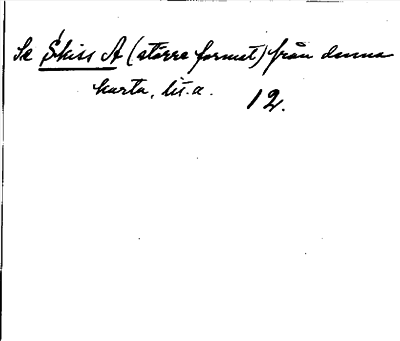 Se Skiss A (större format) från denna
karta, lit. a. 12.